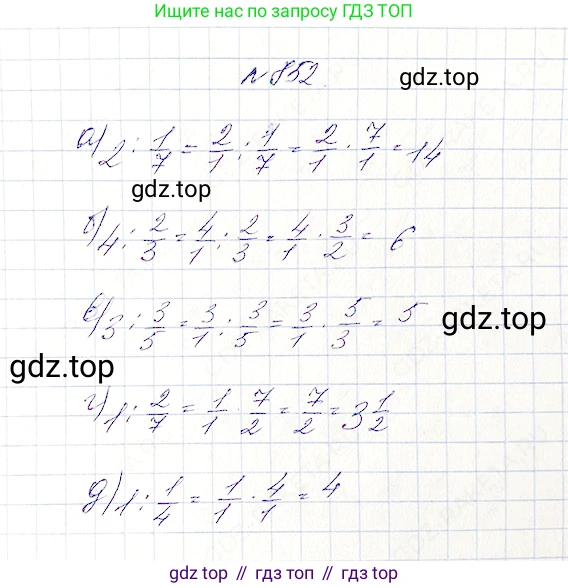 Ищите нас по запросу ГДЗ ТОП
№852.
gdz.top
а) 2 : 1/7 = 2/1 : 1/7 = 2/1 · 7/1 = 14
gdz.top
б) 4 : 2/3 = 4/1 : 2/3 = 4/1 · 3/2 = 6
в) 3 : 3/5 = 3/1 : 3/5 = 3/1 · 5/3 = 5
gdz.top
gdz.top
г) 1 : 2/7 = 1/1 · 7/2 = 7/2 = 3 1/2
д) 1 : 1/4 = 1/1 · 4/1 = 4
gdz топ // гдз топ // gdz.top